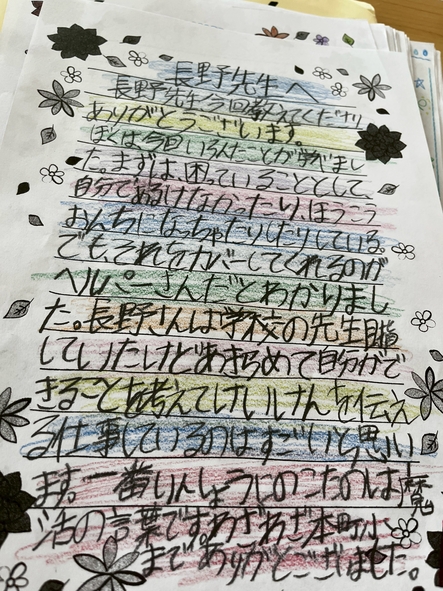 長野先生へ
長野先生今回教えてくださり
ありがとうございます。
ぼくは今日いろんなことが学びまし
た。まずは、困っていることとして、
自分であるけなかったり、ほうこう
おんちになっちゃたりしたりしている。
でも、それをカバーしてくれるのが
ヘルパーさんだとわかりまし
た。長野さんは学校の先生目指
していたけどあきらめて自分がで
きることを考えてけいけんを伝え
る仕事しているのはすごいと思い
ます。一番いんしょうにのこったのは
活の言葉です。わざわざ本町小
までありがとうございました。